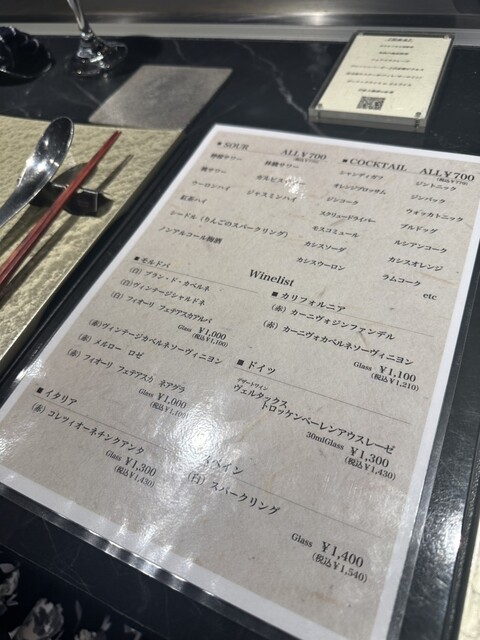 ■ SOUR ALL¥700
(税込¥770)
檸檬サワー 沖縄サワー
梅サワー カルピス
ウーロンハイ ジャスミンハイ
紅茶ハイ
シードル(りんごのスパークリング)
ノンアルコール梅酒
■ COCKTAIL ALL¥700
(税込¥770)
シャンディガン ジントニック
オレンジブロッサム ジンバック
ジンコーク ウォッカトニック
スクリュードライバー ブルドッグ
モスコミュール ルシアンコーク
カシスソーダ カシスオレンジ
カシスウーロン ラムコーク
etc
Winelist
■ モルドバ
(白) ブラン・ド・カベルネ
(白) ヴィンテージシャルドネ
(白) フィオーリ フェテアスカアルバ
Glass ¥1,000
(税込¥1,100)
(赤) ヴィンテージカベルネソーヴィニヨン
(赤) メルロー ロゼ
(赤) フィオーリ フェテアスカ ネアグラ
Glass ¥1,000
■ イタリア
(赤) コレフィオーネチンクアンタ
Glass ¥1,300
(税込¥1,430)
■ カリフォルニア
(赤) カーニヴォジンファンデル
(赤) カーニヴォカベルネソーヴィニヨン
Glass ¥1,100
(税込¥1,210)
■ ドイツ
デザートワイン
ヴェルタックス
トロッケンベーレンアウスレーゼ
30mlGlass ¥1,300
(税込¥1,430)
スペイン
(白) スパークリング
Glass ¥1,400
(税込¥1,540)